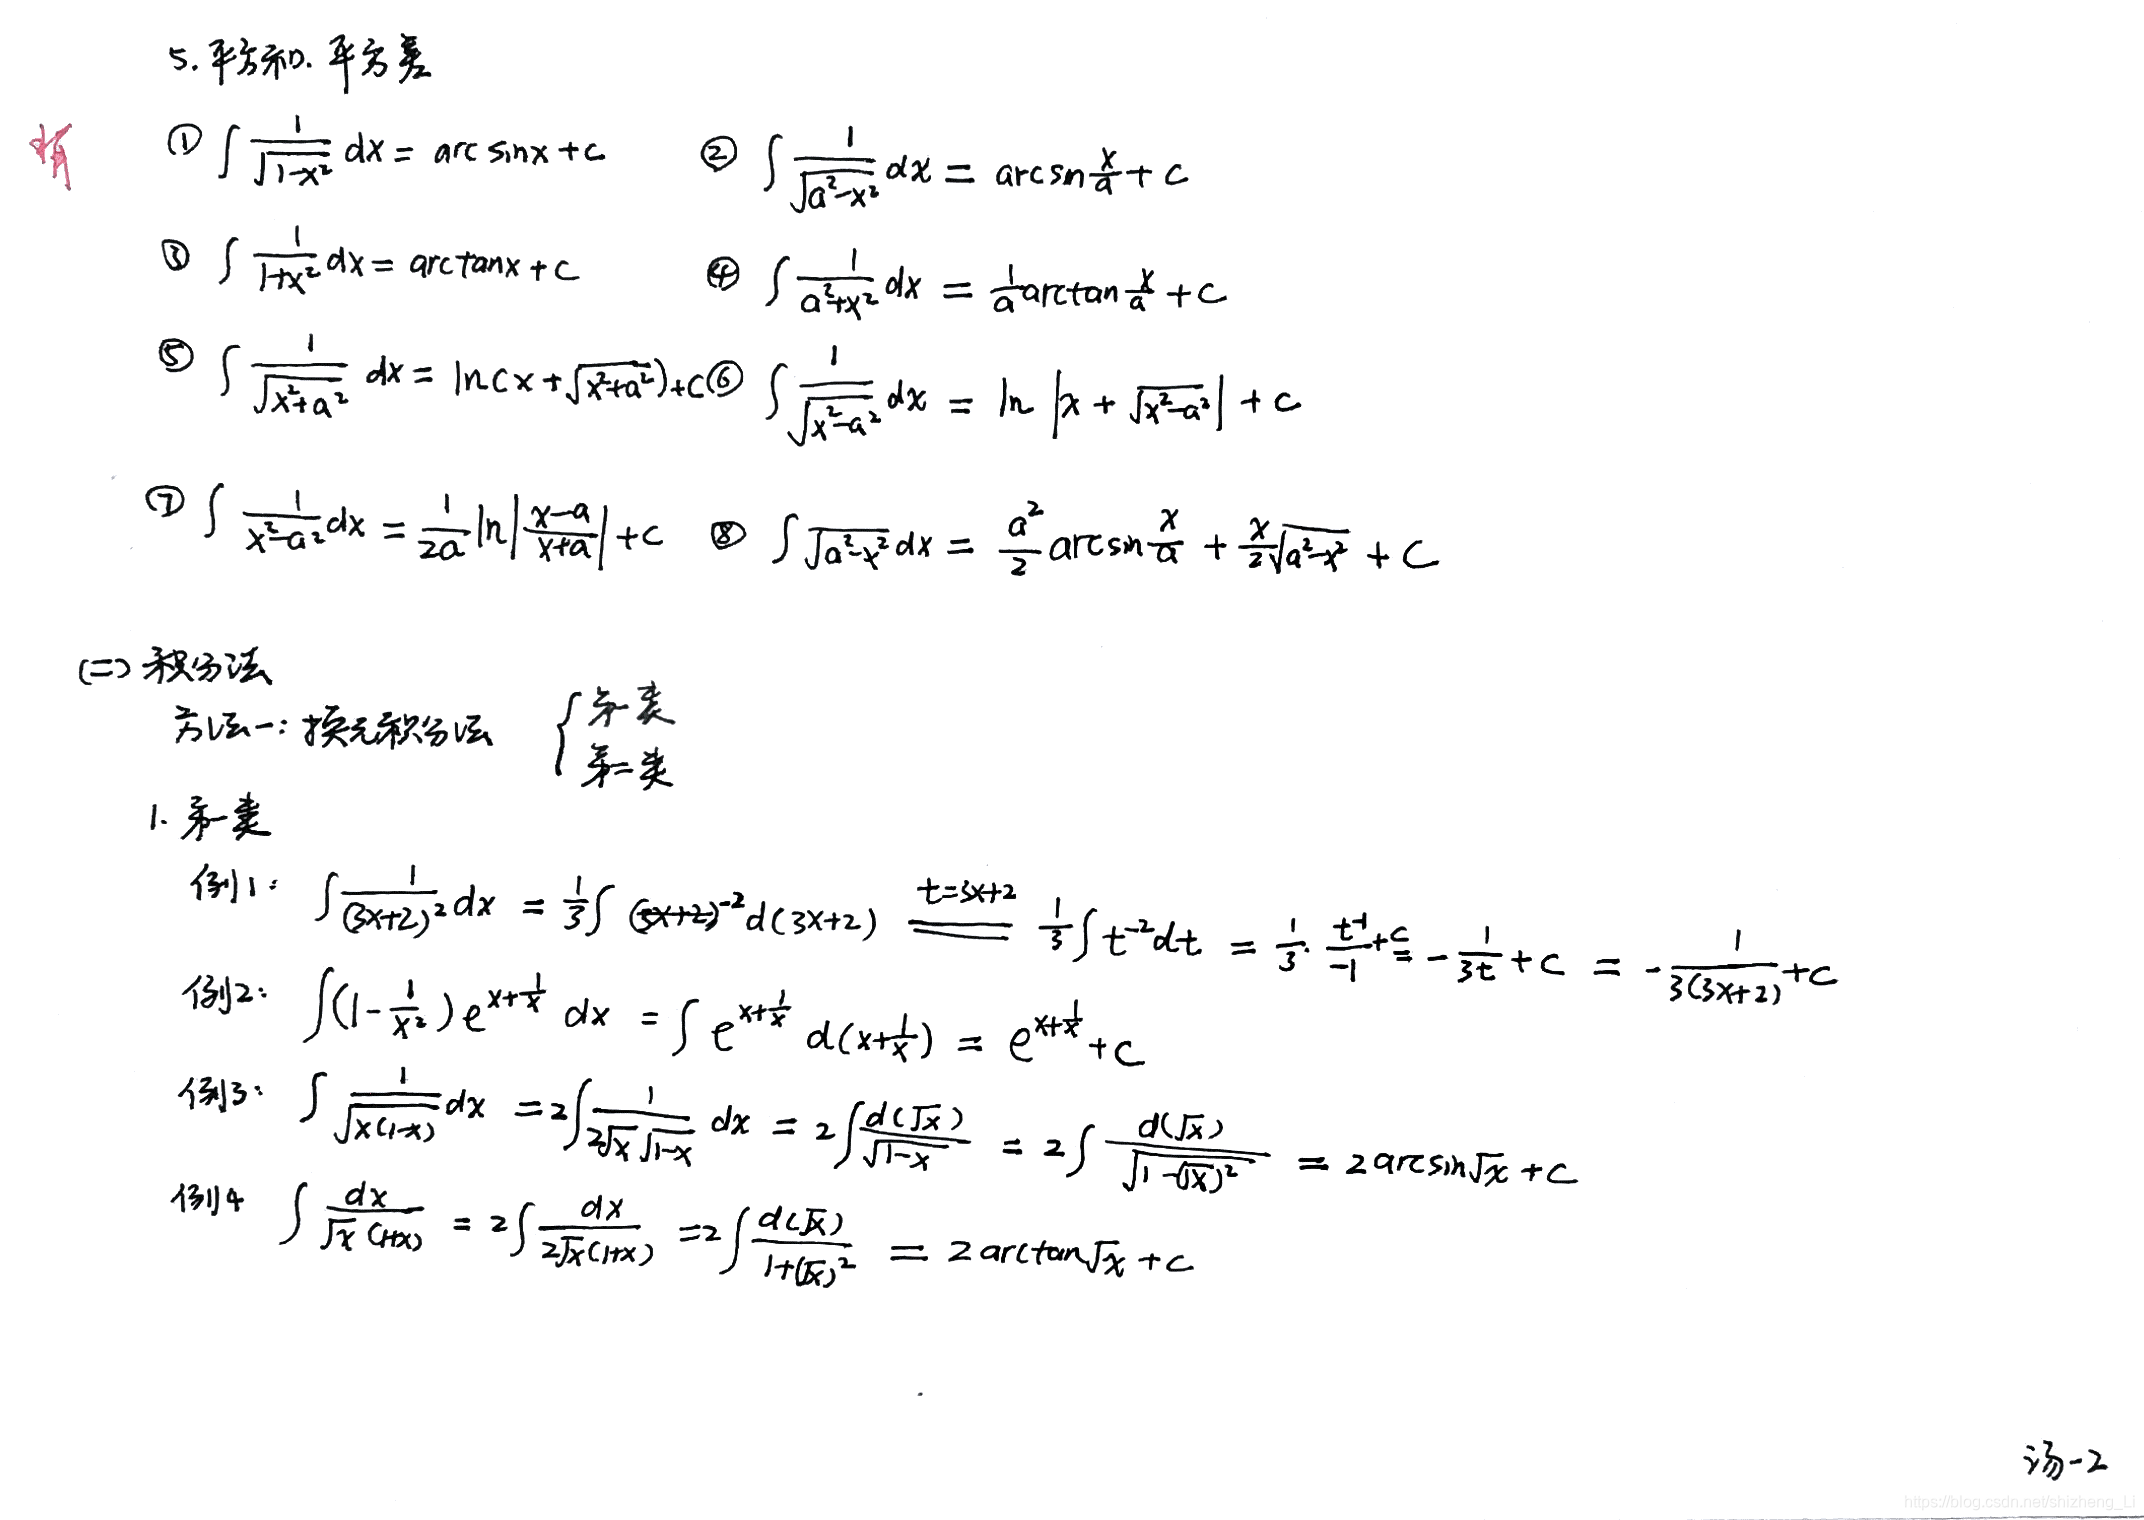 5. 平方和. 平方差
① ∫ 1/√(1-x²) dx = arc sinx + c ② ∫ 1/√(a²-x²) dx = arcsn x/a + c
③ ∫ 1/(1+x²) dx = arctanx + c ④ ∫ 1/(a²+x²) dx = 1/a arctan x/a + c
⑤ ∫ 1/√(x²+a²) dx = ln(x + √(x²+a²)) + c ⑥ ∫ 1/√(x²-a²) dx = ln |x + √(x²-a²)| + c
⑦ ∫ 1/(x²-a²) dx = 1/2a ln|(x-a)/(x+a)| + c ⑧ ∫ √(a²-x²) dx = a²/2 arcsin x/a + x/2 √(a²-x²) + C
(二) 积分法
方法一: 换元积分法 { 第一类
第二类
1. 第一类
例1: ∫ 1/(3x+2)² dx = 1/3 ∫ (3x+2)⁻² d(3x+2) =(t=3x+2)= 1/3 ∫ t⁻² dt = 1/3 · t⁻¹/-1 + c = - 1/3t + c = - 1/3(3x+2) + c
例2: ∫ (1 - 1/x²) e^(x+1/x) dx = ∫ e^(x+1/x) d(x+1/x) = e^(x+1/x) + c
例3: ∫ 1/√(x(1-x)) dx = 2∫ 1/(2√x √(1-x)) dx = 2∫ d(√x)/√(1-x) = 2∫ d(√x)/√(1-(√x)²) = 2 arcsin√x + c
例4 ∫ dx/(√x (1+x)) = 2∫ dx/(2√x(1+x)) = 2∫ d(√x)/(1+(√x)²) = 2 arctan√x + c
汤-2
https://blog.csdn.net/shizheng_Li